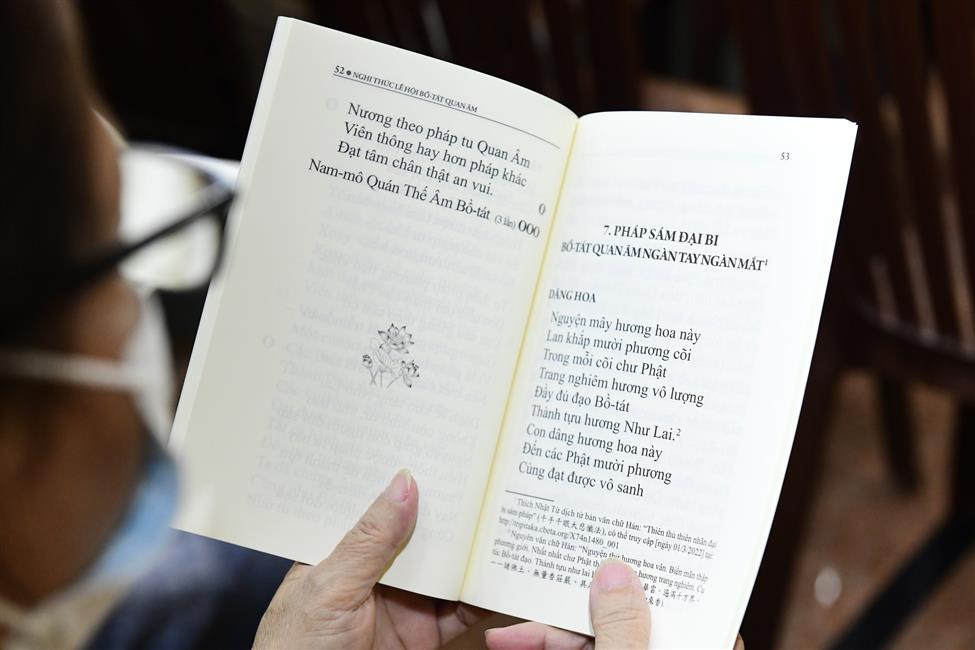 52 ● NGHI THỨC LỄ HỘI BỒ-TÁT QUAN ÂM
Nương theo pháp tu Quan Âm
Viên thông hay hơn pháp khác
Đạt tâm chân thật an vui.
Nam-mô Quán Thế Âm Bồ-tát (3 lần) OOO
53
7. PHÁP SÁM ĐẠI BI
BỒ-TÁT QUAN ÂM NGÀN TAY NGÀN MẮT¹
DÂNG HOA
Nguyện mây hương hoa này
Lan khắp mười phương cõi
Trong mỗi cõi chư Phật
Trang nghiêm hương vô lượng
Đầy đủ đạo Bồ-tát
Thành tựu hương Như Lai.²
Con dâng hương hoa này
Đến các Phật mười phương
Cùng đạt được vô sanh
¹ Thích Nhật Từ dịch từ bản văn chữ Hán: “Thiên thủ thiên nhãn đại
bi sám pháp” (千手千眼大悲懺法), có thể truy cập [ngày 01/3/2022] tại:
http://tripitaka.cbeta.org/X74n1480_001
² Nguyên văn chữ Hán: “Nguyện thử hương hoa vân. Biến mãn thập
phương giới. Nhất nhất chư Phật hương trang nghiêm. Cụ
túc Bồ-tát đạo. Thành tựu như lai 華雲，遍滿十方界，
一一諸佛土，無量香莊嚴，具 來香）